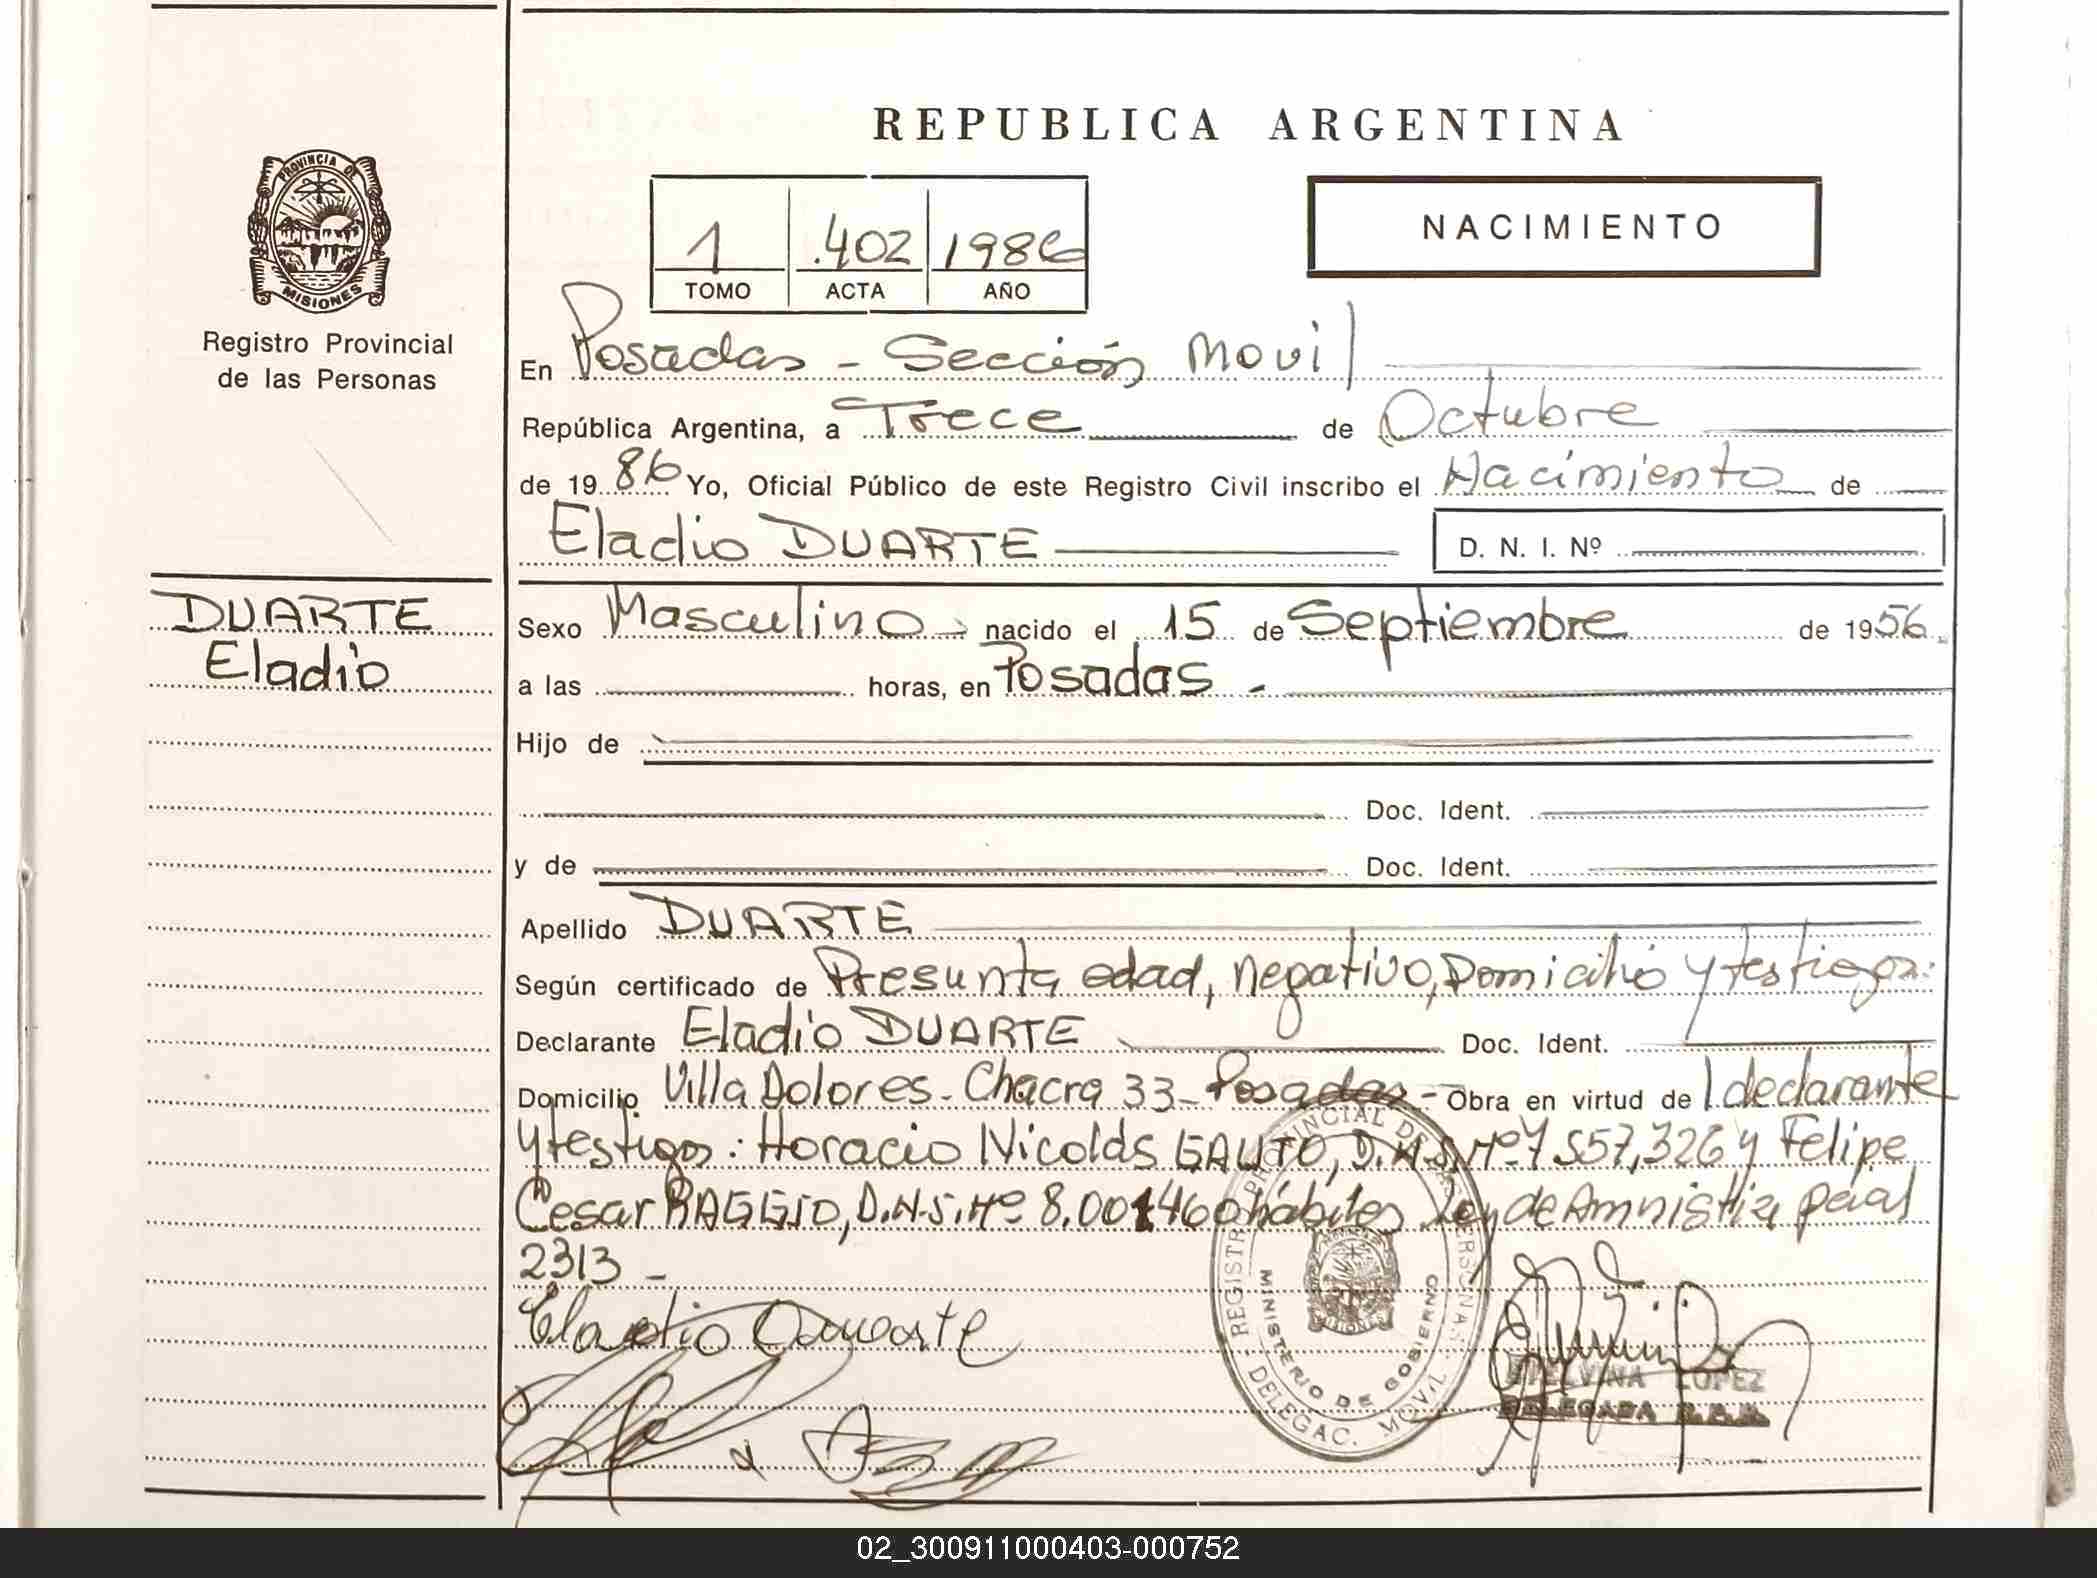 REPUBLICA ARGENTINA
PROVINCIA DE
MISIONES
Registro Provincial
de las Personas
1 .402 1986
TOMO ACTA AÑO
NACIMIENTO
En Posadas - Sección Movil
República Argentina, a Trece de Octubre
de 1986 Yo, Oficial Público de este Registro Civil inscribo el Nacimiento de
Eladio DUARTE D. N. I. Nº
DUARTE
Eladio
Sexo Masculino - nacido el 15 de Septiembre de 1956.
a las horas, en Posadas -
Hijo de
Doc. Ident.
y de Doc. Ident.
Apellido DUARTE
Según certificado de Presunta edad, negativo, Domicilio y testigos:
Declarante Eladio DUARTE Doc. Ident.
Domicilio Villa Dolores - Chacra 33 - Posadas - Obra en virtud de l declarante
y testigos: Horacio Nicolás GAUTO, D.N.S. Nº 7 557,326 y Felipe
Cesar BAGGIO, D.N.S. Nº 8.001460 hábiles Ley de Amnistia
2313 -
Eladio Duarte
REGISTRO PROVINCIAL DE LAS PERSONAS
MINISTERIO DE GOBIERNO
MISIONES
DELEGAC. MOVIL
LOPEZ
DELEGADA
02_300911000403-000752